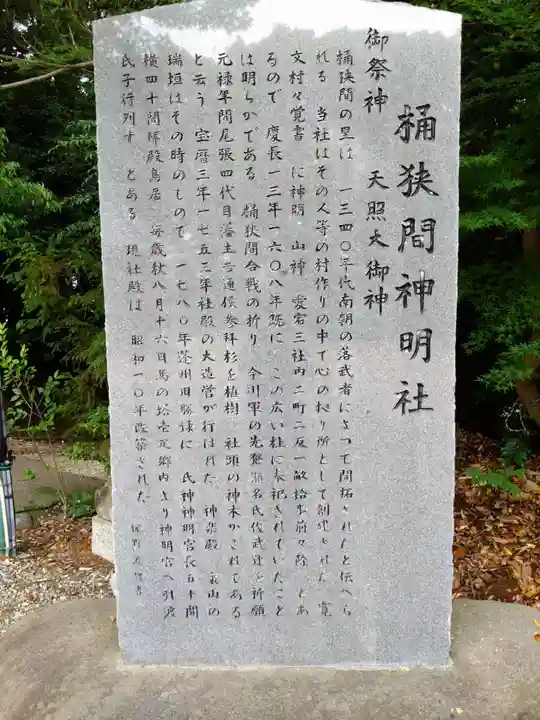 桶狭間神明社
御祭神　天照大御神
桶狭間の里は 一三四〇年代南朝の落武者によって開拓されたと伝へら
れる 当社はその人等の村作りの中で心の拠り所として創建された 寛
文村々覚書 に神明 山神 愛宕三社内二町二反一畝拾歩前々除 とあ
るので 慶長一三年一六〇八年既に この広い社に奉祀されていたこと
は明らかである 桶狭間合戦の折り 今川軍の先発瀬名氏俊武運を祈願
元禄年間尾張四代目藩主吉通侯参拝杉を植樹 社頭の神木がこれである
と云う 宝暦三年一七五三年社殿の大造営が行はれた 神楽殿 裏山の
瑞垣はその時のもので 一七八〇年蓬州旧勝録に 氏神神明宮長五十間
横四十間拝殿鳥居 毎歳秋八月十六日馬の塔壱疋郷内より神明宮へ引渡
氏子行列す とある 現社殿は 昭和一〇年改築された